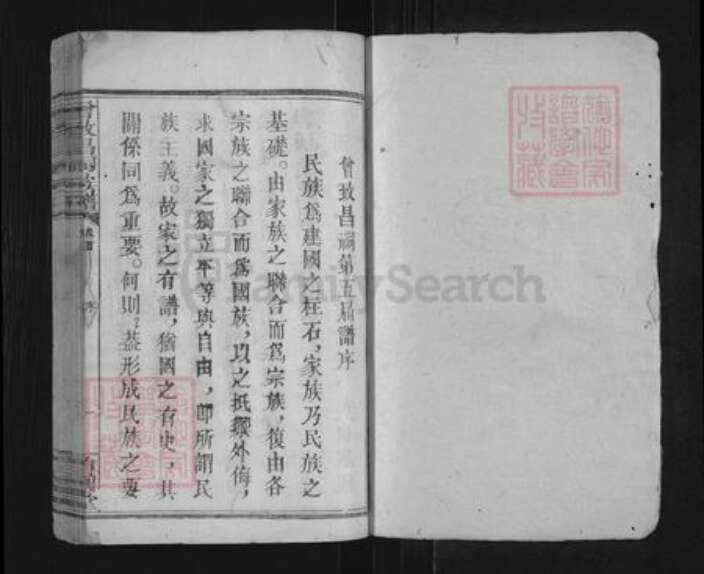 曾致昌祠第五届譜序
民族爲建國之柱石，家族乃民族之
基礎。由家族之聯合而爲宗族，復由各
宗族之聯合而爲國族，以之抵禦外侮，
求國家之獨立平等與自由，卽所謂民
族主義。故家之有譜，猶國之有史，其
關係同爲重要。何則，葢形成民族之要
FamilySearch